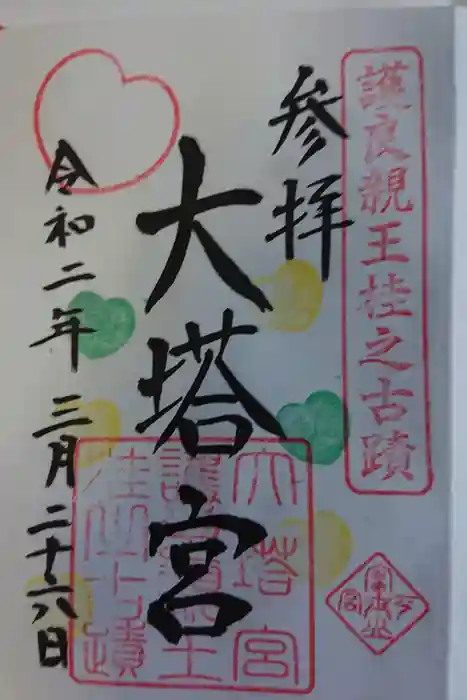 護良親王桂之古蹟
参拝
大塔宮
令和二年三月二十六日
大塔宮
護良親王
桂之古蹟